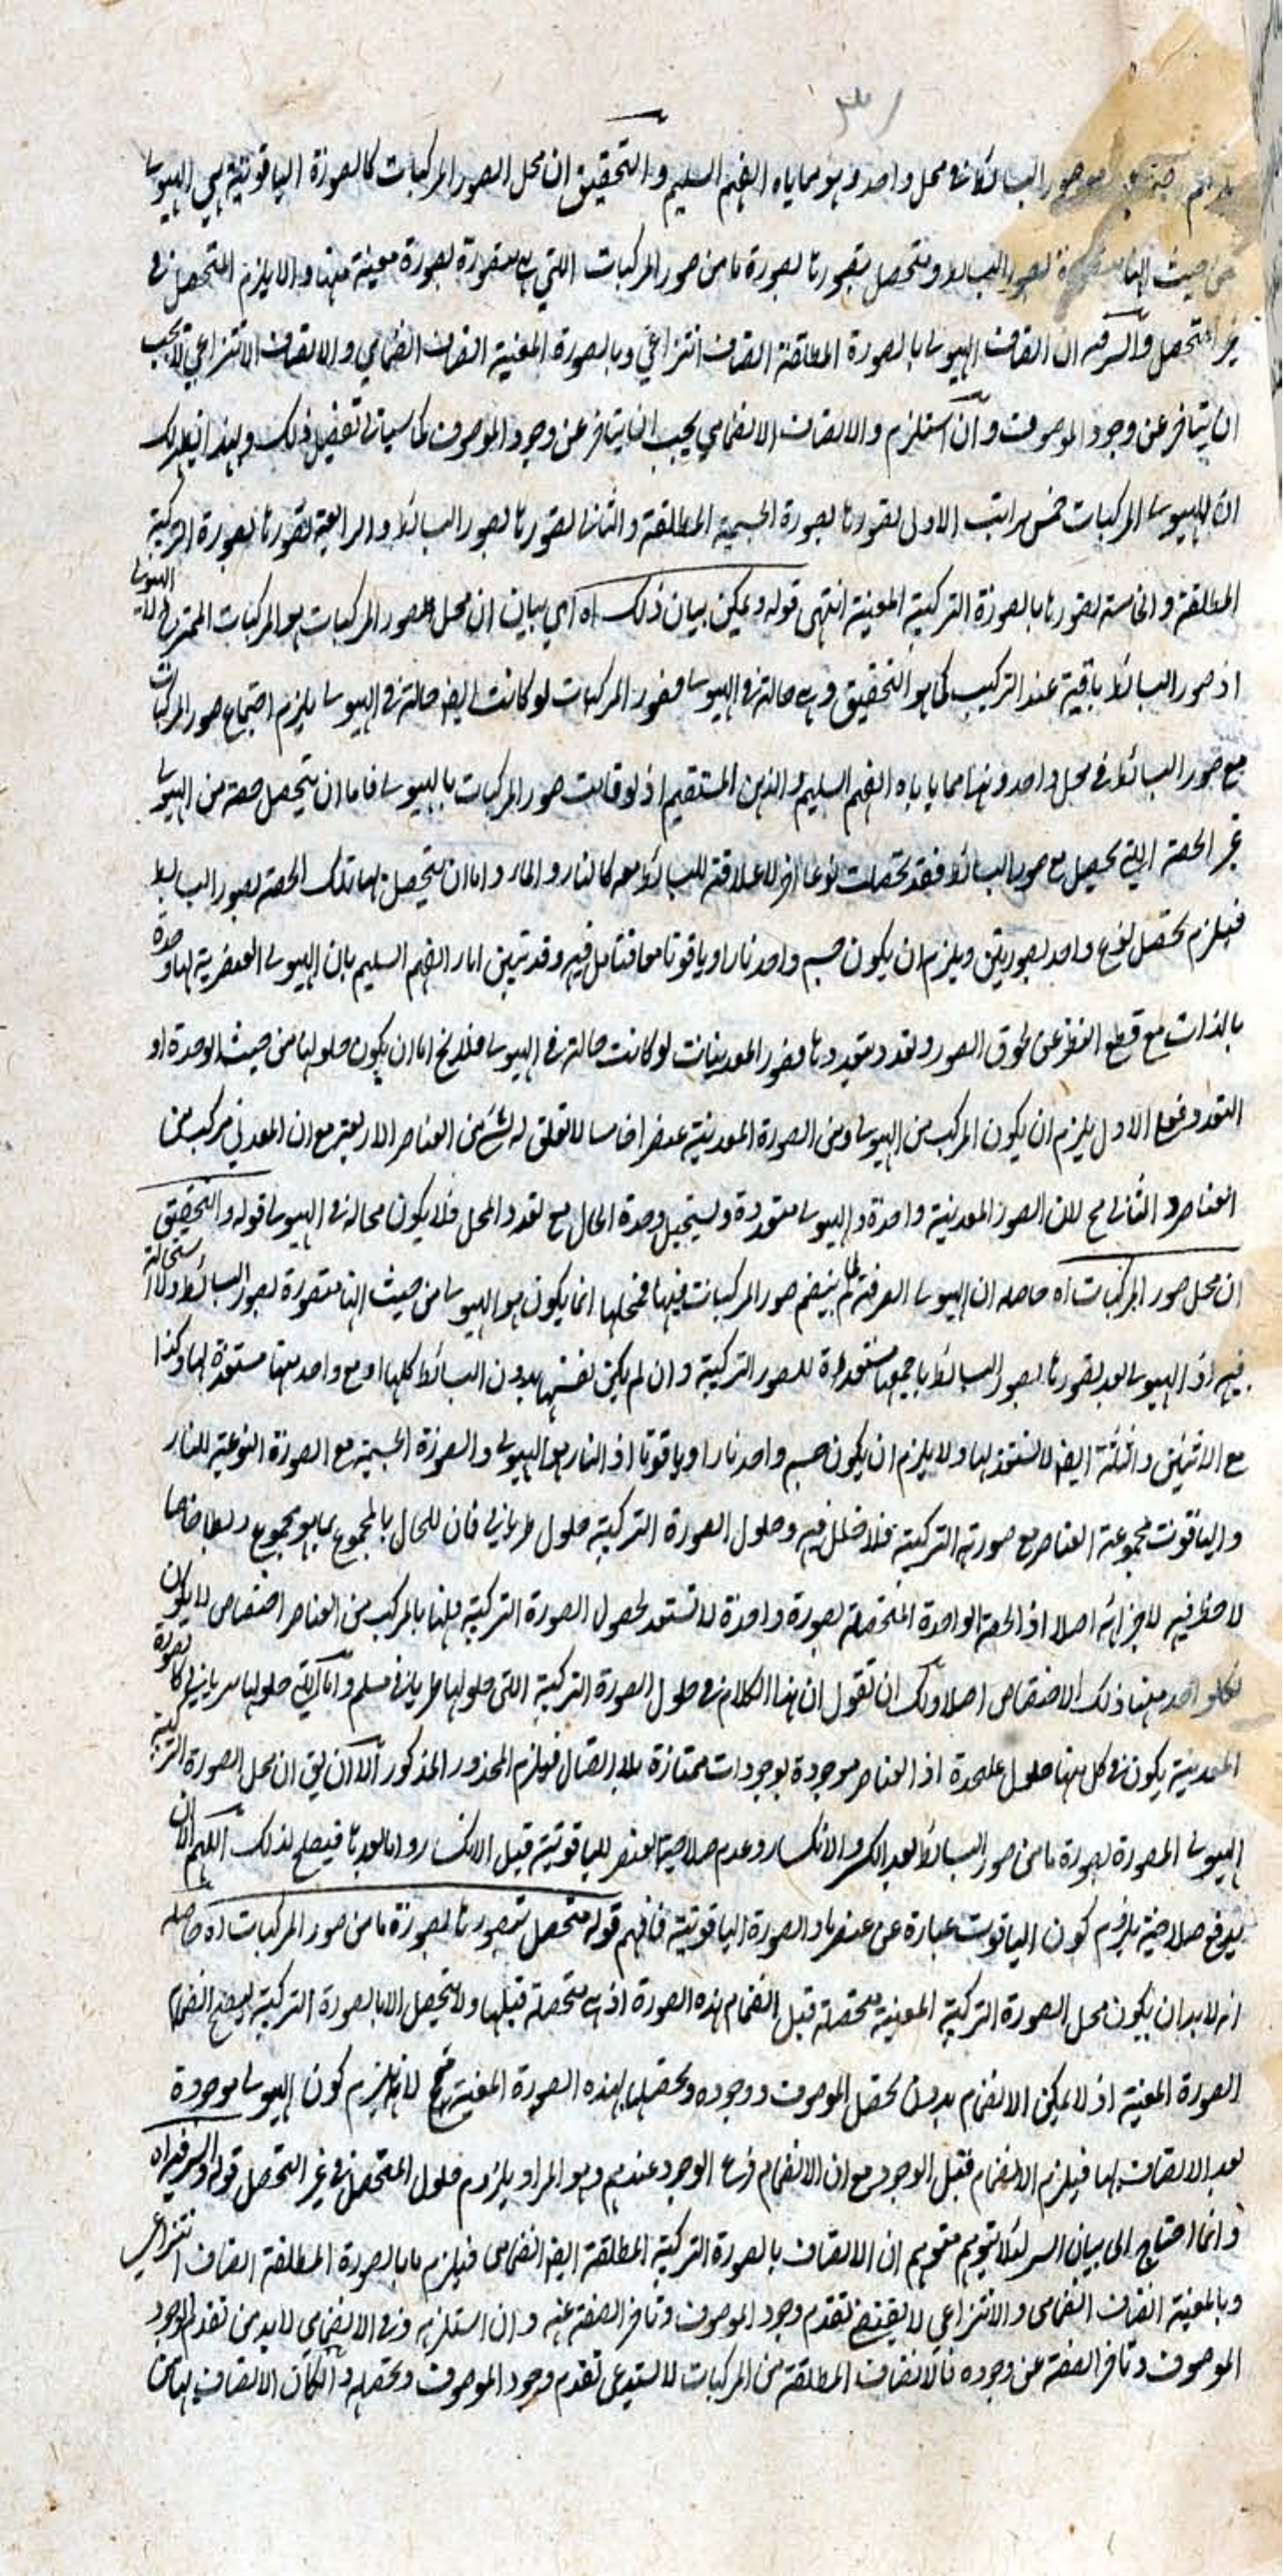 صور البسائط في محل واحد وهو مما ياباه الفهم السليم والتحقيق ان محل الصور المركبات كالصورة الياقوتية هي الهيولى
من حيث انها متصورة لصور البسائط ومتحصل بتصورها لصورة ما من صور المركبات التي هي متصورة لصورة معينة منها والا يلزم المتحصل في
غير المتحصل والسر فيه ان اتصاف الهيولى بالصورة المطلقة اتصاف انتزاعي وبالصورة المعينة اتصاف انضمامي والاتصاف الانتزاعي لا يجب
ان يتاخر عن وجود الموصوف وان استلزم والاتصاف الانضمامي يجب ان يتاخر عن وجود الموصوف كما سياتي تفصيل ذلك وبهذا يظهر لك
ان للهيولى المركبات خمس مراتب الاولى تصورها بصورة الجسمية المطلقة والثانية تصورها بصور البسائط والرابعة تصورها بصورة التركيبية
المطلقة والخامسة تصورها بالصورة التركيبية المعينة انتهى قوله ويمكن بيان ذلك اه اي بيان ان محل صور المركبات هو المركبات الممتزج لا الهيولى
اذ صور البسائط باقية عند التركيب كما هو التحقيق وهي حالة في الهيولى فصور المركبات لو كانت ايضا حالة في الهيولى يلزم اجتماع صور المركبات
مع صور البسائط في محل واحد وهذا مما ياباه الفهم السليم والذهن المستقيم اذ لو قامت صور المركبات بالهيولى فاما ان يتحصل حصة من الهيولى
غير الحصة التي تحصل مع صور البسائط فقد تحصلت نوعا اخر لا علاقة للبسائط معه كالنار والماء واما ان يتحصل بها تلك الحصة بصور البسائط
فيلزم تحصل نوع واحد بصورتين ويلزم ان يكون جسم واحد نارا وياقوتا معا فتامل فيه وقد تبين اباء الفهم السليم بان الهيولى العنصرية لها وحدة
بالذات مع قطع النظر عن لحوق الصور وتعدد بتعددها فصور المعدنيات لو كانت حالة في الهيولى فلا يخ اما ان يكون حلولها من حيث الوحدة او
التعدد فعلى الاول يلزم ان يكون المركب من الهيولى ومن الصورة المعدنية عنصرا خامسا لا تعلق له بشئ من العناصر الاربعة مع ان المعدني مركب من
العناصر والثاني مح لان الصور المعدنية واحدة والهيولى متعددة ويستحيل وحدة الحال مع تعدد المحل فلا يكون محاله في الهيولى قوله والتحقيق
ان محل صور المركبات اه حاصله ان الهيولى الصرفة لما لم ينضم صور المركبات فيها فمحلها انما يكون هو الهيولى من حيث انها متصورة بصور البسائط ولا استحالة
فيه اذ الهيولى بعد تصورها بصور البسائط باجمعها مستعدة للصور التركيبية وان لم يكن نفسها بدون البسائط كلها او مع واحد منها مستعدة لها وكذا
مع الاثنين والثلثة ايضا لا تستعد لها ولا يلزم ان يكون جسم واحد نارا وياقوتا اذ النار هو الهيولى والصورة الجسمية مع الصورة النوعية للنار
والياقوت مجموعة العناصر مع صورته التركيبية فلا خلل فيه وحلول الصورة التركيبية حلول طرياني فان للحال بالمجموع بما هو مجموع ربطا خاصا
لا حظ فيه لاجزائه اصلا اذ الحصة الواحدة المتحصلة بصورة واحدة لا تستعد لحصول الصورة التركيبية فلها بالمركب من العناصر اختصاص لا يكون
لكل واحد منها ذلك الاختصاص اصلا ولك ان تقول ان هذا الكلام في حلول الصورة التركيبية التي حلولها طرياني مسلم واما التي حلولها سرياني كالصورة
المعدنية يكون في كل منها حلول علحدة اذ العناصر موجودة بوجودات ممتازة بلا اتصال فيلزم المحذور المذكور الا ان يق ان محل الصورة التركيبية
الهيولى المصورة بصورة ما من صور البسائط بعد الكسر والانكسار وعدم صلاحية العنصر للياقوتية قبل الانكسار واما بعدها فيصلح لذلك اللهم الا ان
يدفع صلاحية بلزوم كون الياقوت عبارة عن عنصرها والصورة الياقوتية فافهم قوله متحصل بتصورها بصورة ما من صور المركبات اه حاصله
انه لا بد ان يكون محل الصورة التركيبية المعينة متحصلة قبل انضمام هذه الصورة اذ هي متحصلة قبلها ولا يتحصل الا بالصورة التركيبية ليصح انضمام
الصورة المعينة اذ لا يمكن الانضمام بدون تحصل الموصوف ووجوده وتحصلها بهذه الصورة المعينة مح لانه يلزم كون الهيولى موجودة
بعد الاتصاف بها فيلزم الانضمام قبل الوجود مع ان الانضمام فرع الوجود عندهم وهو المراد يلزوم حلول المتحصل في غير المتحصل قوله والسر فيه اه
وانما احتاج الى بيان السر لئلا يتوهم متوهم ان الاتصاف بالصورة التركيبية المطلقة ايضا انضمامي فيلزم ما بالصورة المطلقة اتصاف انتزاعي
وبالمعينة اتصاف انضمامي والانتزاعي لا يقتضي تقدم وجود الموصوف وتاخر الصفة عنه وان استلزمه وفي الانضمامي لا بد من تقدم الوجود
الموصوف وتاخر الصفة عن وجوده فالاتصاف المطلقة من المركبات لا يستدعي تقدم وجود الموصوف وتحصله ولكان الاتصاف بها من